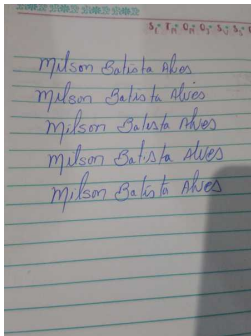 S₁ª T₀ª Q₀ª Q₁ª S₁ª S₁ª
Milson Batista Alves
Milson Batista Alves
Milson Batista Alves
Milson Batista Alves
Milson Batista Alves